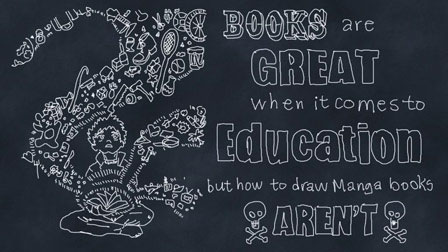 BOOKS are
GREAT
when it comes to
Education
but how to draw Manga books
AREN'T